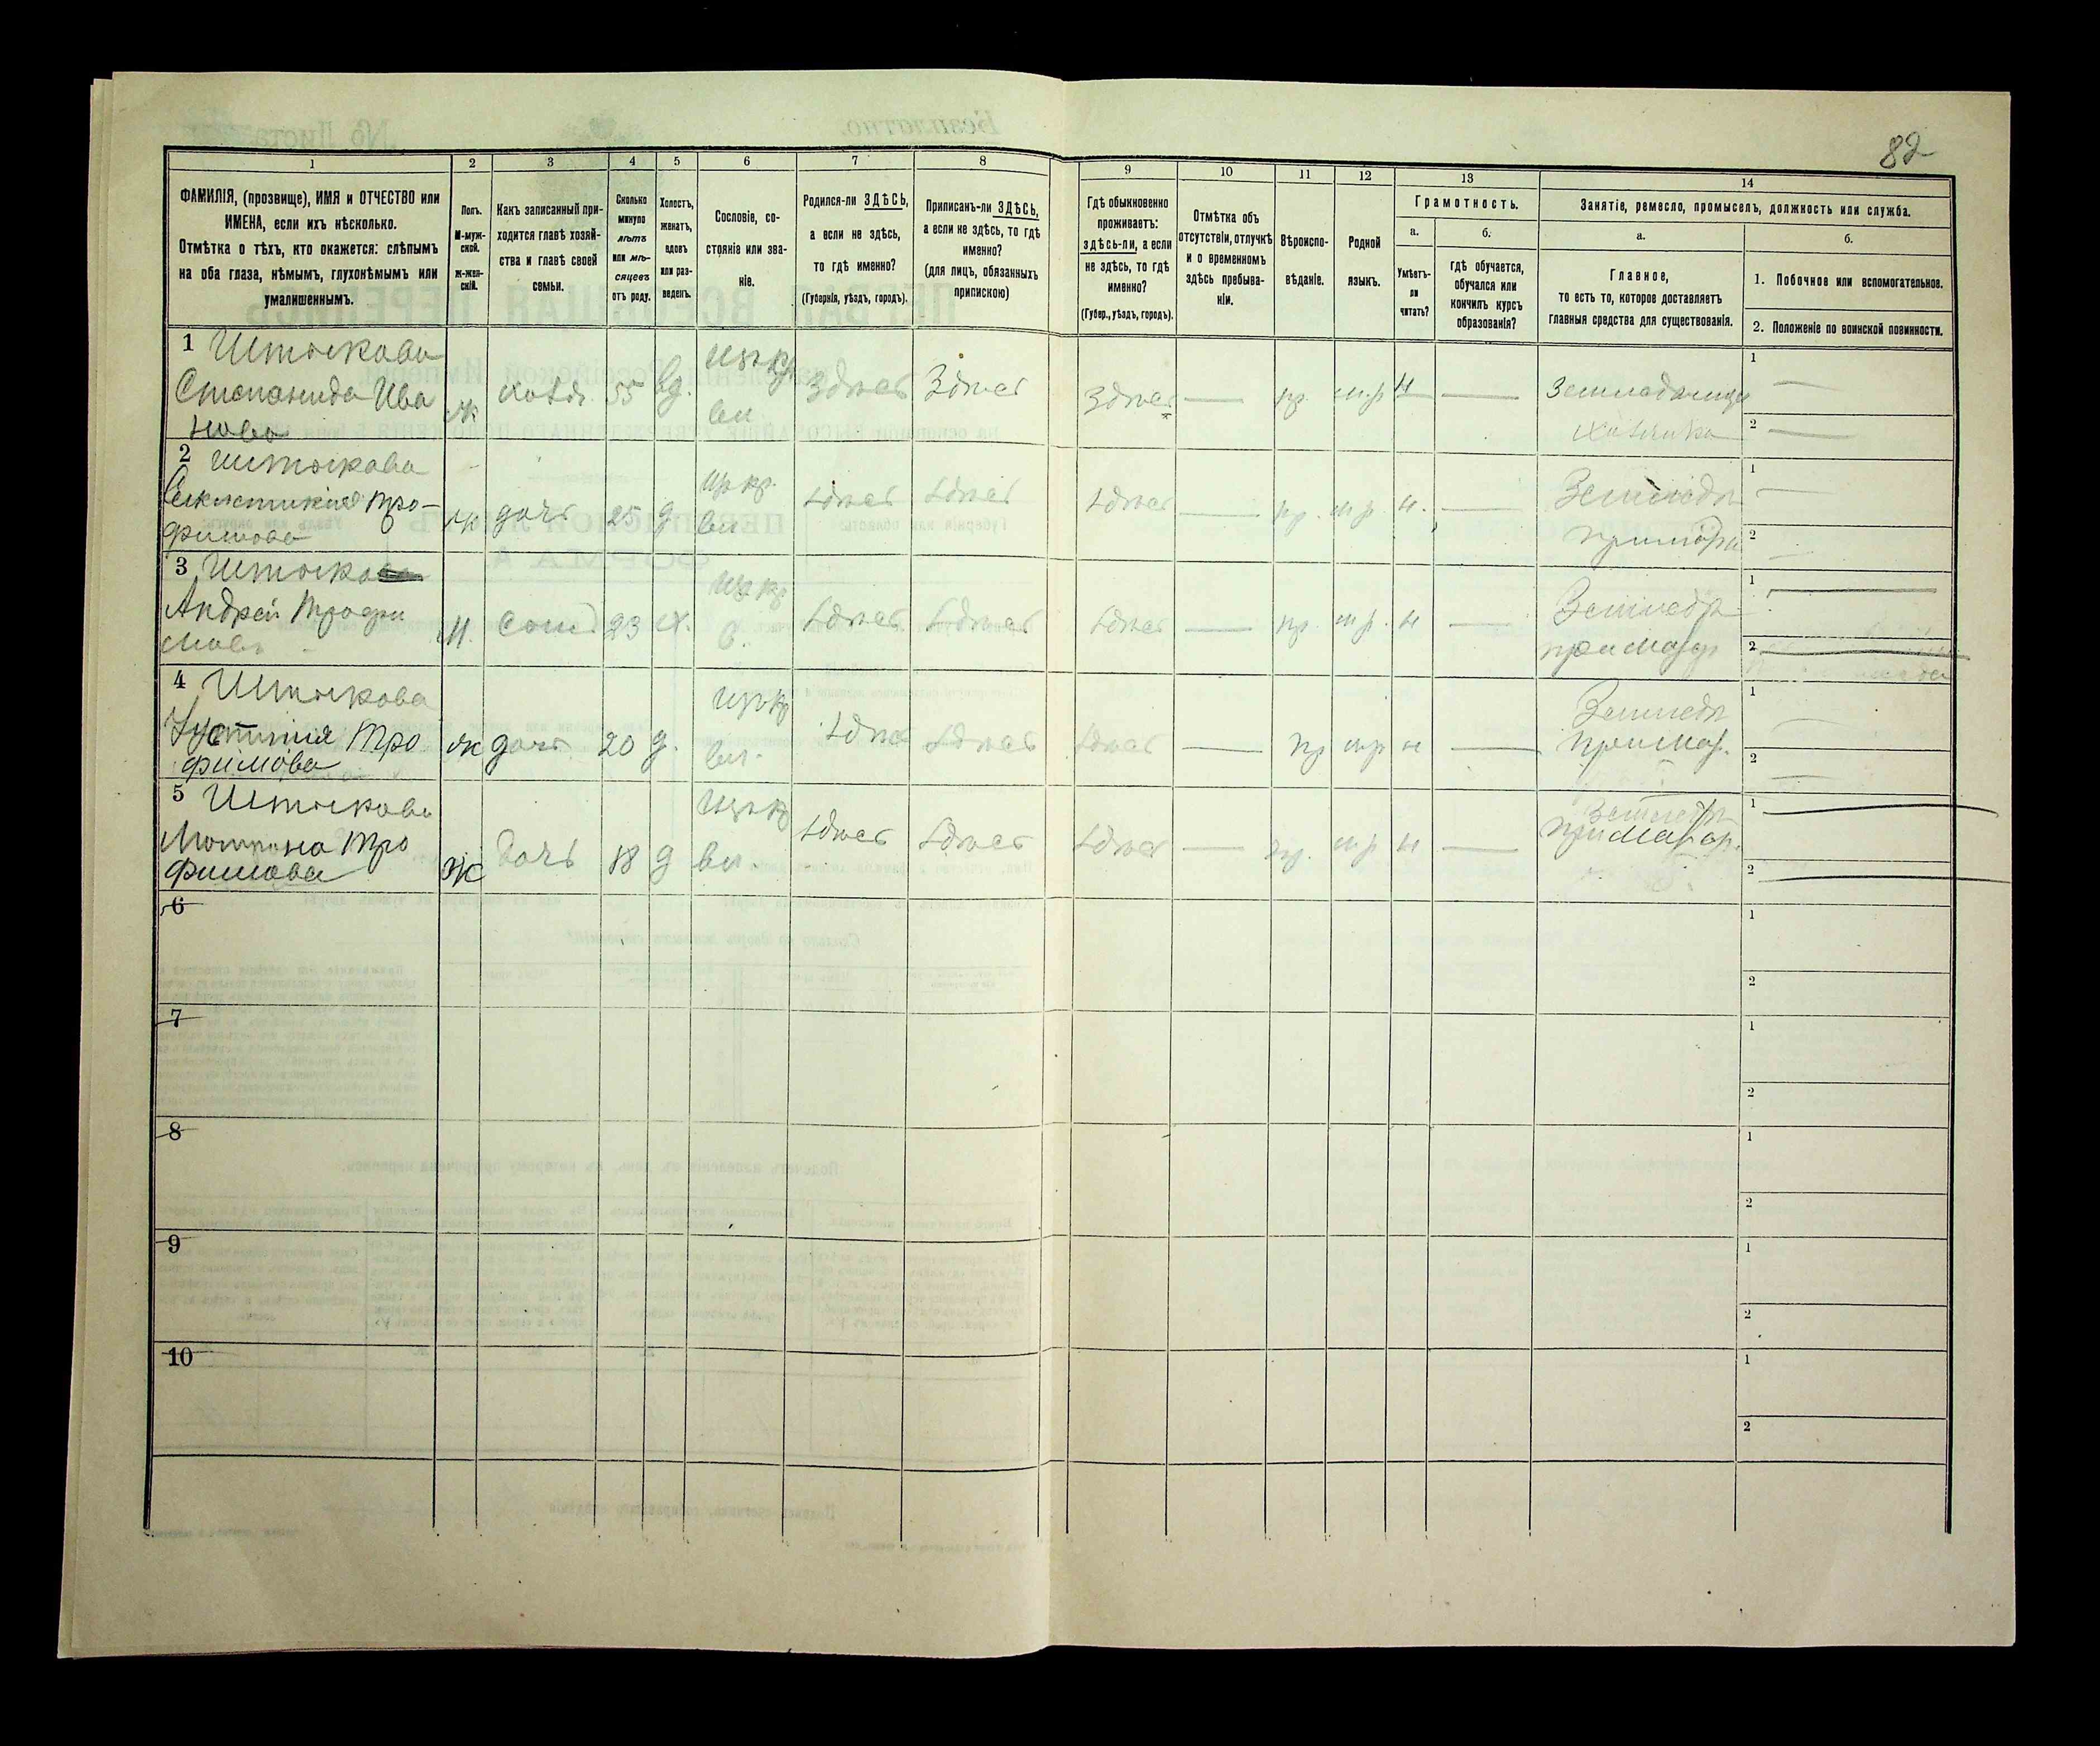 82
1 2 3 4 5 6 7 8 9 10 11 12 13 14
ФАМИЛІЯ, (прозвище), ИМЯ и ОТЧЕСТВО или
ИМЕНА, если ихъ нѣсколько.
Отмѣтка о тѣхъ, кто окажется: слѣпымъ
на оба глаза, нѣмымъ, глухонѣмымъ или
умалишеннымъ.
Полъ.
М-муж-
ской.
ж-жен-
скій.
Какъ записанный при-
ходится главѣ хозяй-
ства и главѣ своей
семьи.
Сколько
минуло
лѣтъ
или мѣ-
сяцевъ
отъ роду.
Холостъ,
женатъ,
вдовъ
или раз-
веденъ.
Сословіе, со-
стояніе или зва-
ніе.
Родился-ли ЗДѢСЬ,
а если не здѣсь,
то гдѣ именно?
(Губернія, уѣздъ, городъ).
Приписанъ-ли ЗДѢСЬ,
а если не здѣсь, то гдѣ
именно?
(для лицъ, обязанныхъ
припискою)
Гдѣ обыкновенно
проживаетъ:
здѣсь-ли, а если
не здѣсь, то гдѣ
именно?
(Губер., уѣздъ, городъ).
Отмѣтка объ
отсутствіи, отлучкѣ
и о временномъ
здѣсь пребыва-
ніи.
Вѣроиспо-
вѣданіе.
Родной
языкъ.
Грамотность.
а.
Умѣетъ-
ли
читать?
б.
гдѣ обучается,
обучался или
кончилъ курсъ
образованія?
Занятіе, ремесло, промыселъ, должность или служба.
а.
Главное,
то есть то, которое доставляетъ
главныя средства для существованія.
б.
1. Побочное или вспомогательное.
2. Положеніе по воинской повинности.
1 Штыкова
Степанида Ива
нова
ж хозя. 55 вд. здѣсь здѣсь здѣсь — пр. м.р н —
1 —
2 —
2 Штыкова
Трофимова
ж дочь 25 д здѣсь здѣсь здѣсь — пр. м р н. —
Земледѣл
1 —
2
3
Андрей Трофи
мовъ
м. сын 23 х. здѣсь здѣсь здѣсь — пр. м р. н —
Земледѣл
при матер
1 —
2 —
4 Штыкова
Устинія Тро
фимова
ж дочь 20 д. здѣсь здѣсь здѣсь — пр м р н —
Земледѣл
при мат.
1 —
2 —
5 Штыкова
Матрена Тро
фимова
ж дочь 18 д здѣсь здѣсь здѣсь — пр. м р н —
Земледѣл
при матер.
1 —
2 —
6
1
2
7
1
2
8
1
2
9
1
2
10
1
2